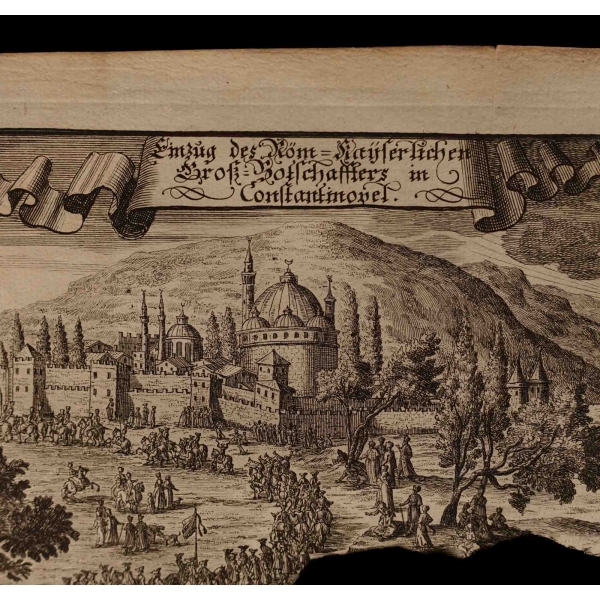 Einzug des Röm-Kayserlichen
Groß-Botschaffters in
Constantinopel.